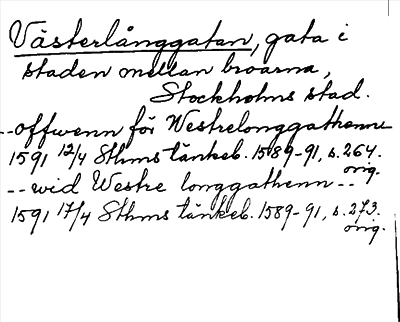 Västerlånggatan, gata i
staden mellan broarna,
Stockholms stad.
--offwenn för Westrelonggathenn
1591 12/4 Sthms tänkeb. 1589-91, s. 264.
orig.
-- wid Westre longgathenn --
1591 17/4 Sthms tänkeb. 1589-91, s. 273.
orig.